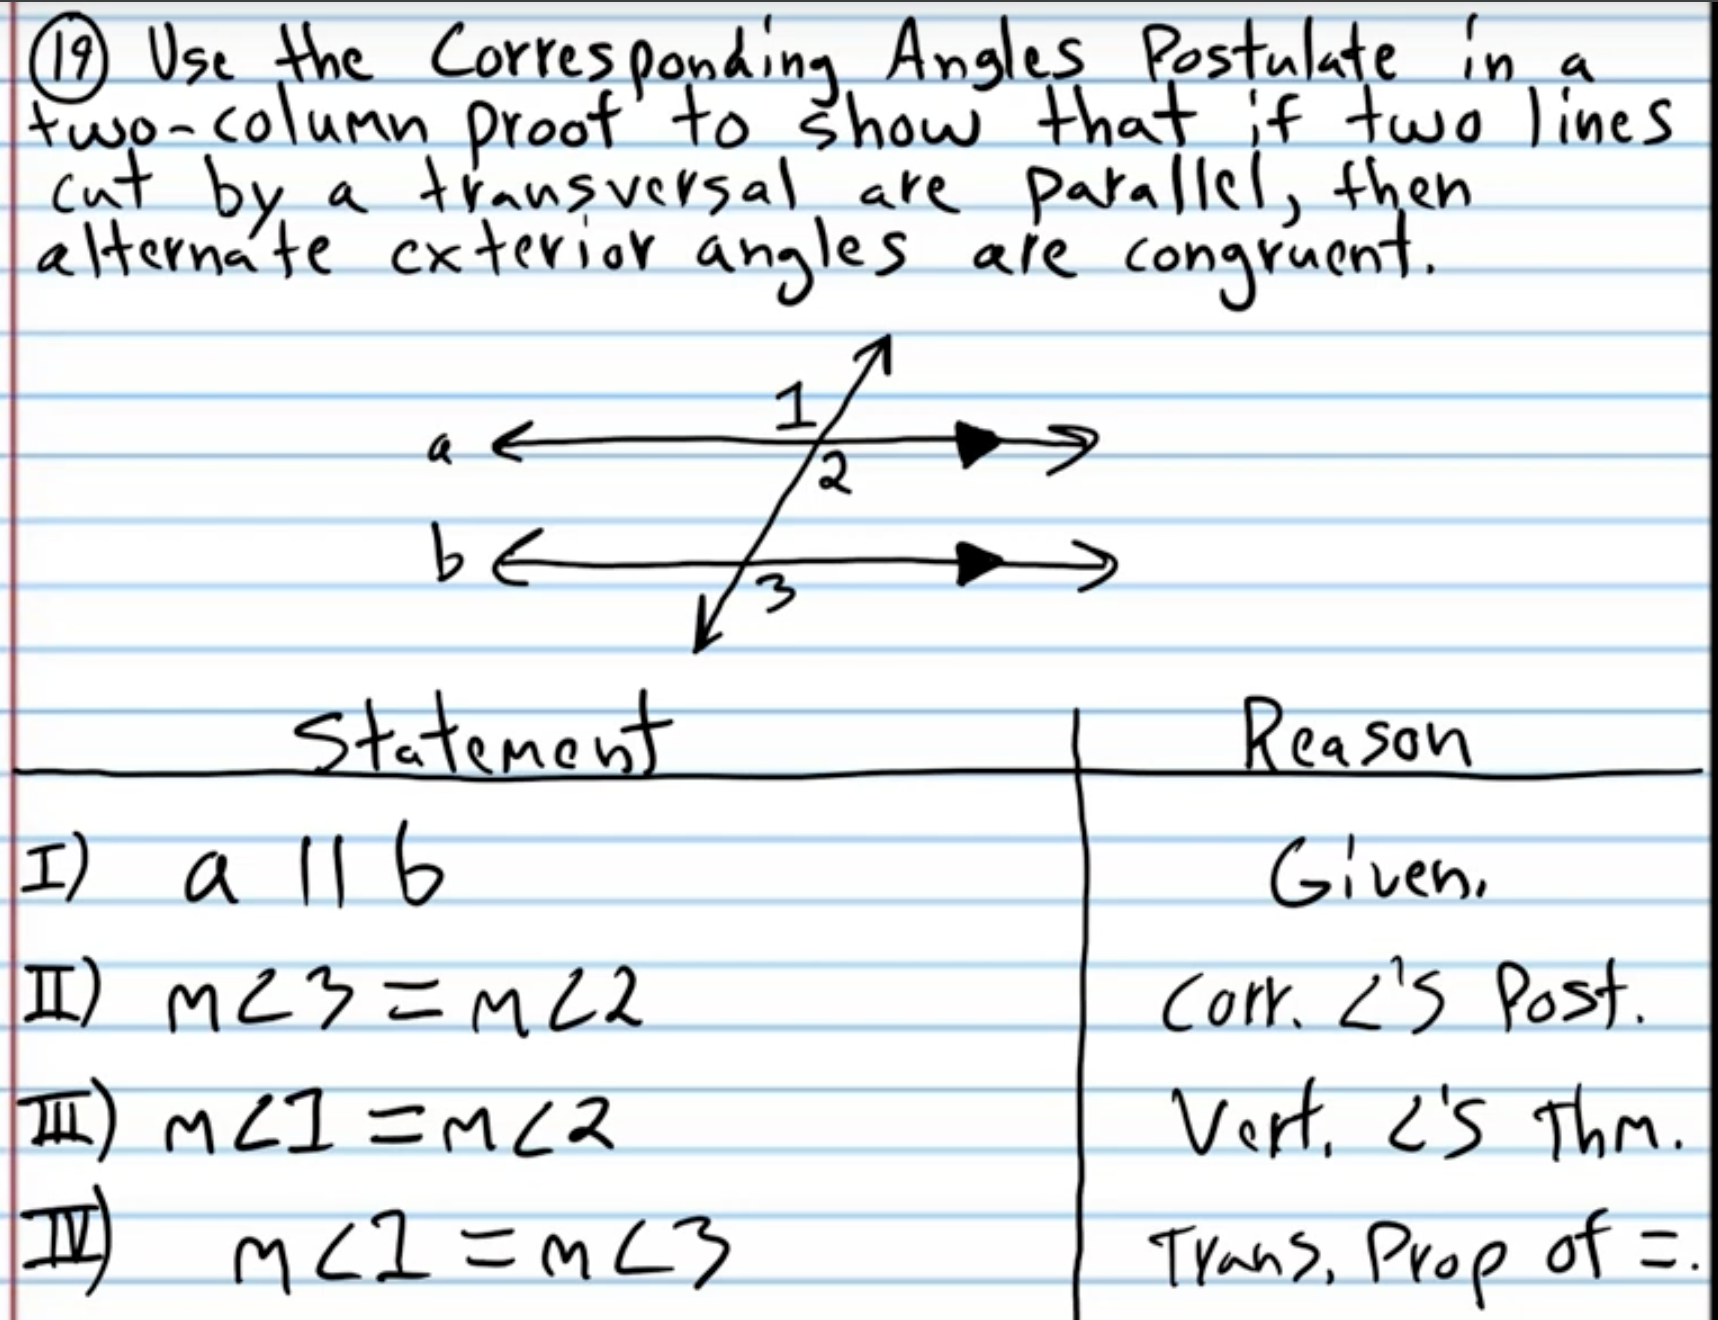 19 Use the Corresponding Angles Postulate in a
two-column proof to show that if two lines
cut by a transversal are parallel, then
alternate exterior angles are congruent.
1
a
2
b
3
Statement Reason
I) a || b Given.
II) m∠3 = m∠2 Corr. ∠'s Post.
III) m∠1 = m∠2 Vert. ∠'s Thm.
IV) m∠1 = m∠3 Trans. Prop of =.